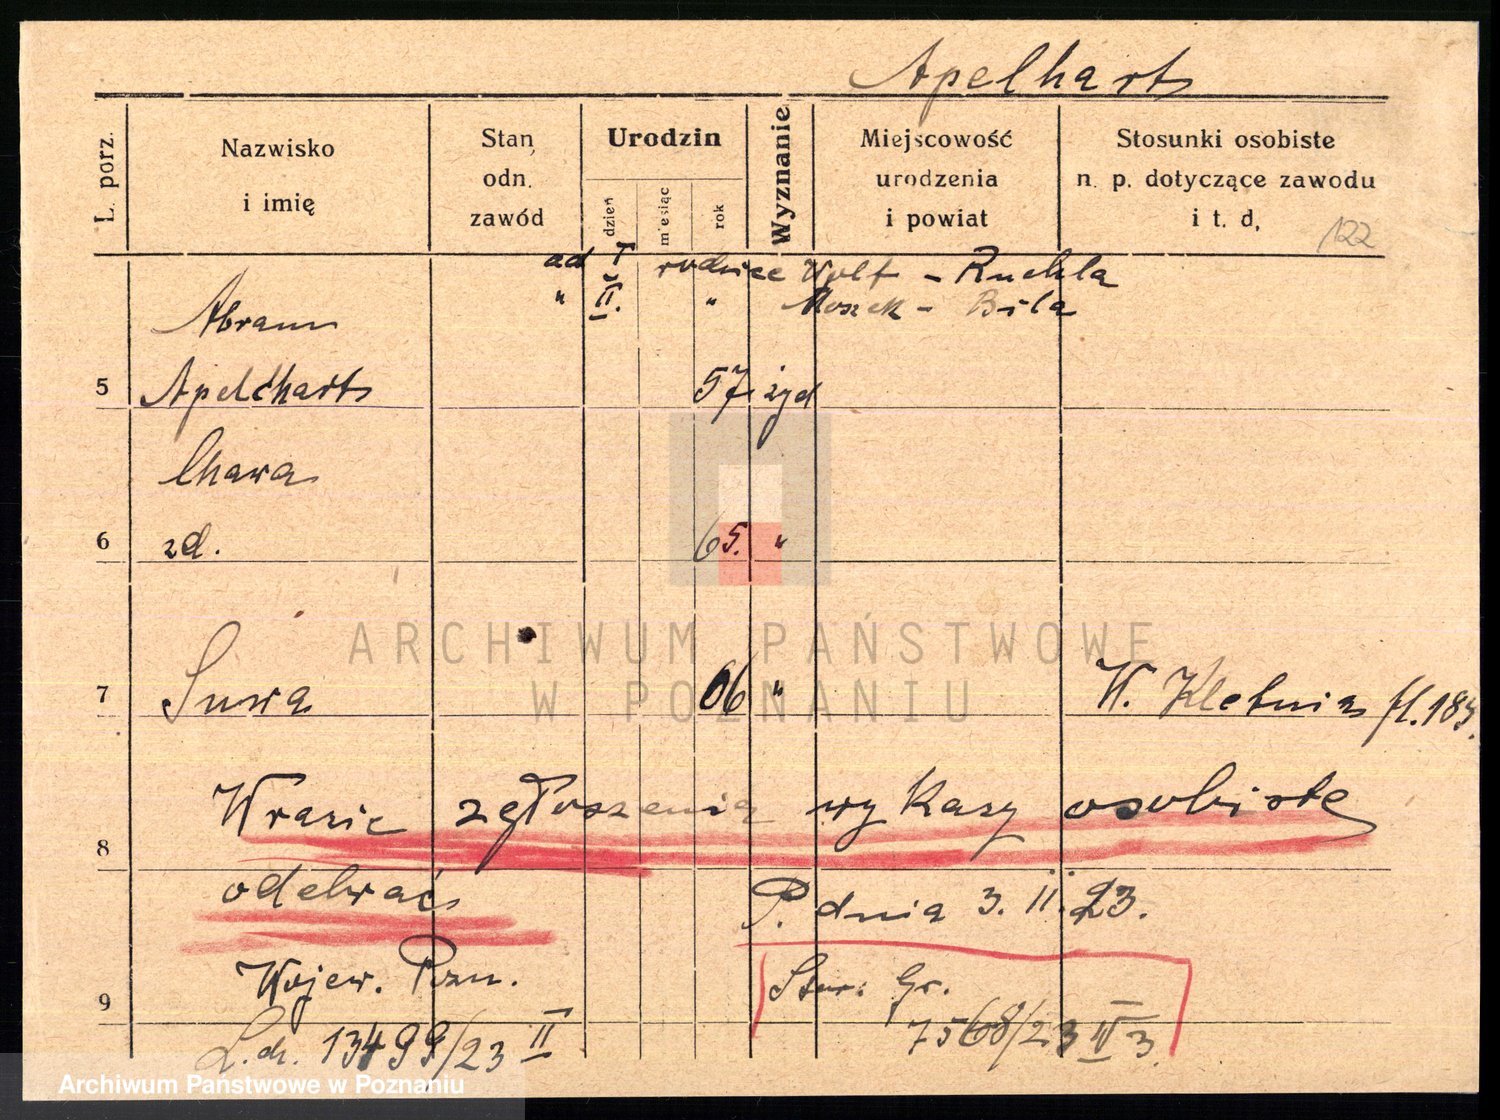 Apelharts
L. porz.
Nazwisko
i imię
Stan
odn.
zawód
Urodzin
dzień
miesiąc
rok
Wyznanie
Miejscowość
urodzenia
i powiat
Stosunki osobiste
n. p. dotyczące zawodu
i t. d,
122
ad I rodzice Wolf - Ruchla
" II. " Moszek - Bila
Abram
5 Apelcharts 57 żyd
Chawa
6 zd. 65. "
ARCHIWUM PAŃSTWOWE
W POZNANIU
7 Surva 06 " W. Kletnia fl. 183.
Wrazie zgłoszenia wykazy osobiste
8
odebrać P. dnia 3. II. 23.
Wojew. Pozn.
9
L.dz. 13499/23 II 7568/23 IV 3.
Archiwum Państwowe w Poznaniu